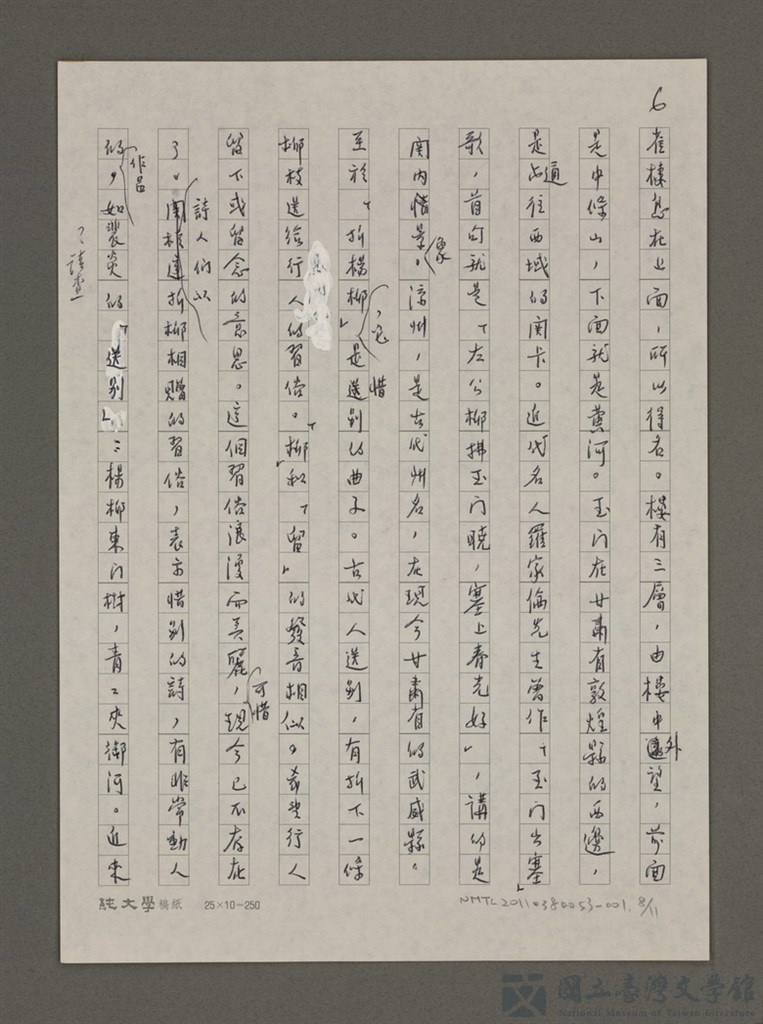 6
雀棲息在上面,所以得名。樓有三層,由樓中外望,前面
是中條山,下面就是黃河。玉門在甘肅省敦煌縣的西邊,
是通往西域的關卡。近代名人羅家倫先生曾作「玉門出塞」
歌,首句就是「左公柳拂玉門曉,塞上春光好」,講的是
關內情景。涼州,是古代州名,在現今甘肅省的武威縣。
至於「折楊柳」,它是惜別的曲子。古代人送別,有折下一條
柳枝送給行人的習俗。「柳」和「留」的發音相似。希望行人
留下或留念的意思。這個習俗浪漫而美麗,可惜現今已不存在
了。詩人們以折柳相贈的習俗,表示惜別的詩,有非常動人
的作品,如裴炎的「送別」:楊柳東門樹,青青夾御河。近來
?請查
純文學稿紙 25×10=250
NMTL20110380053-001. 8/11
國立臺灣文學館
National Museum of Taiwan Literature